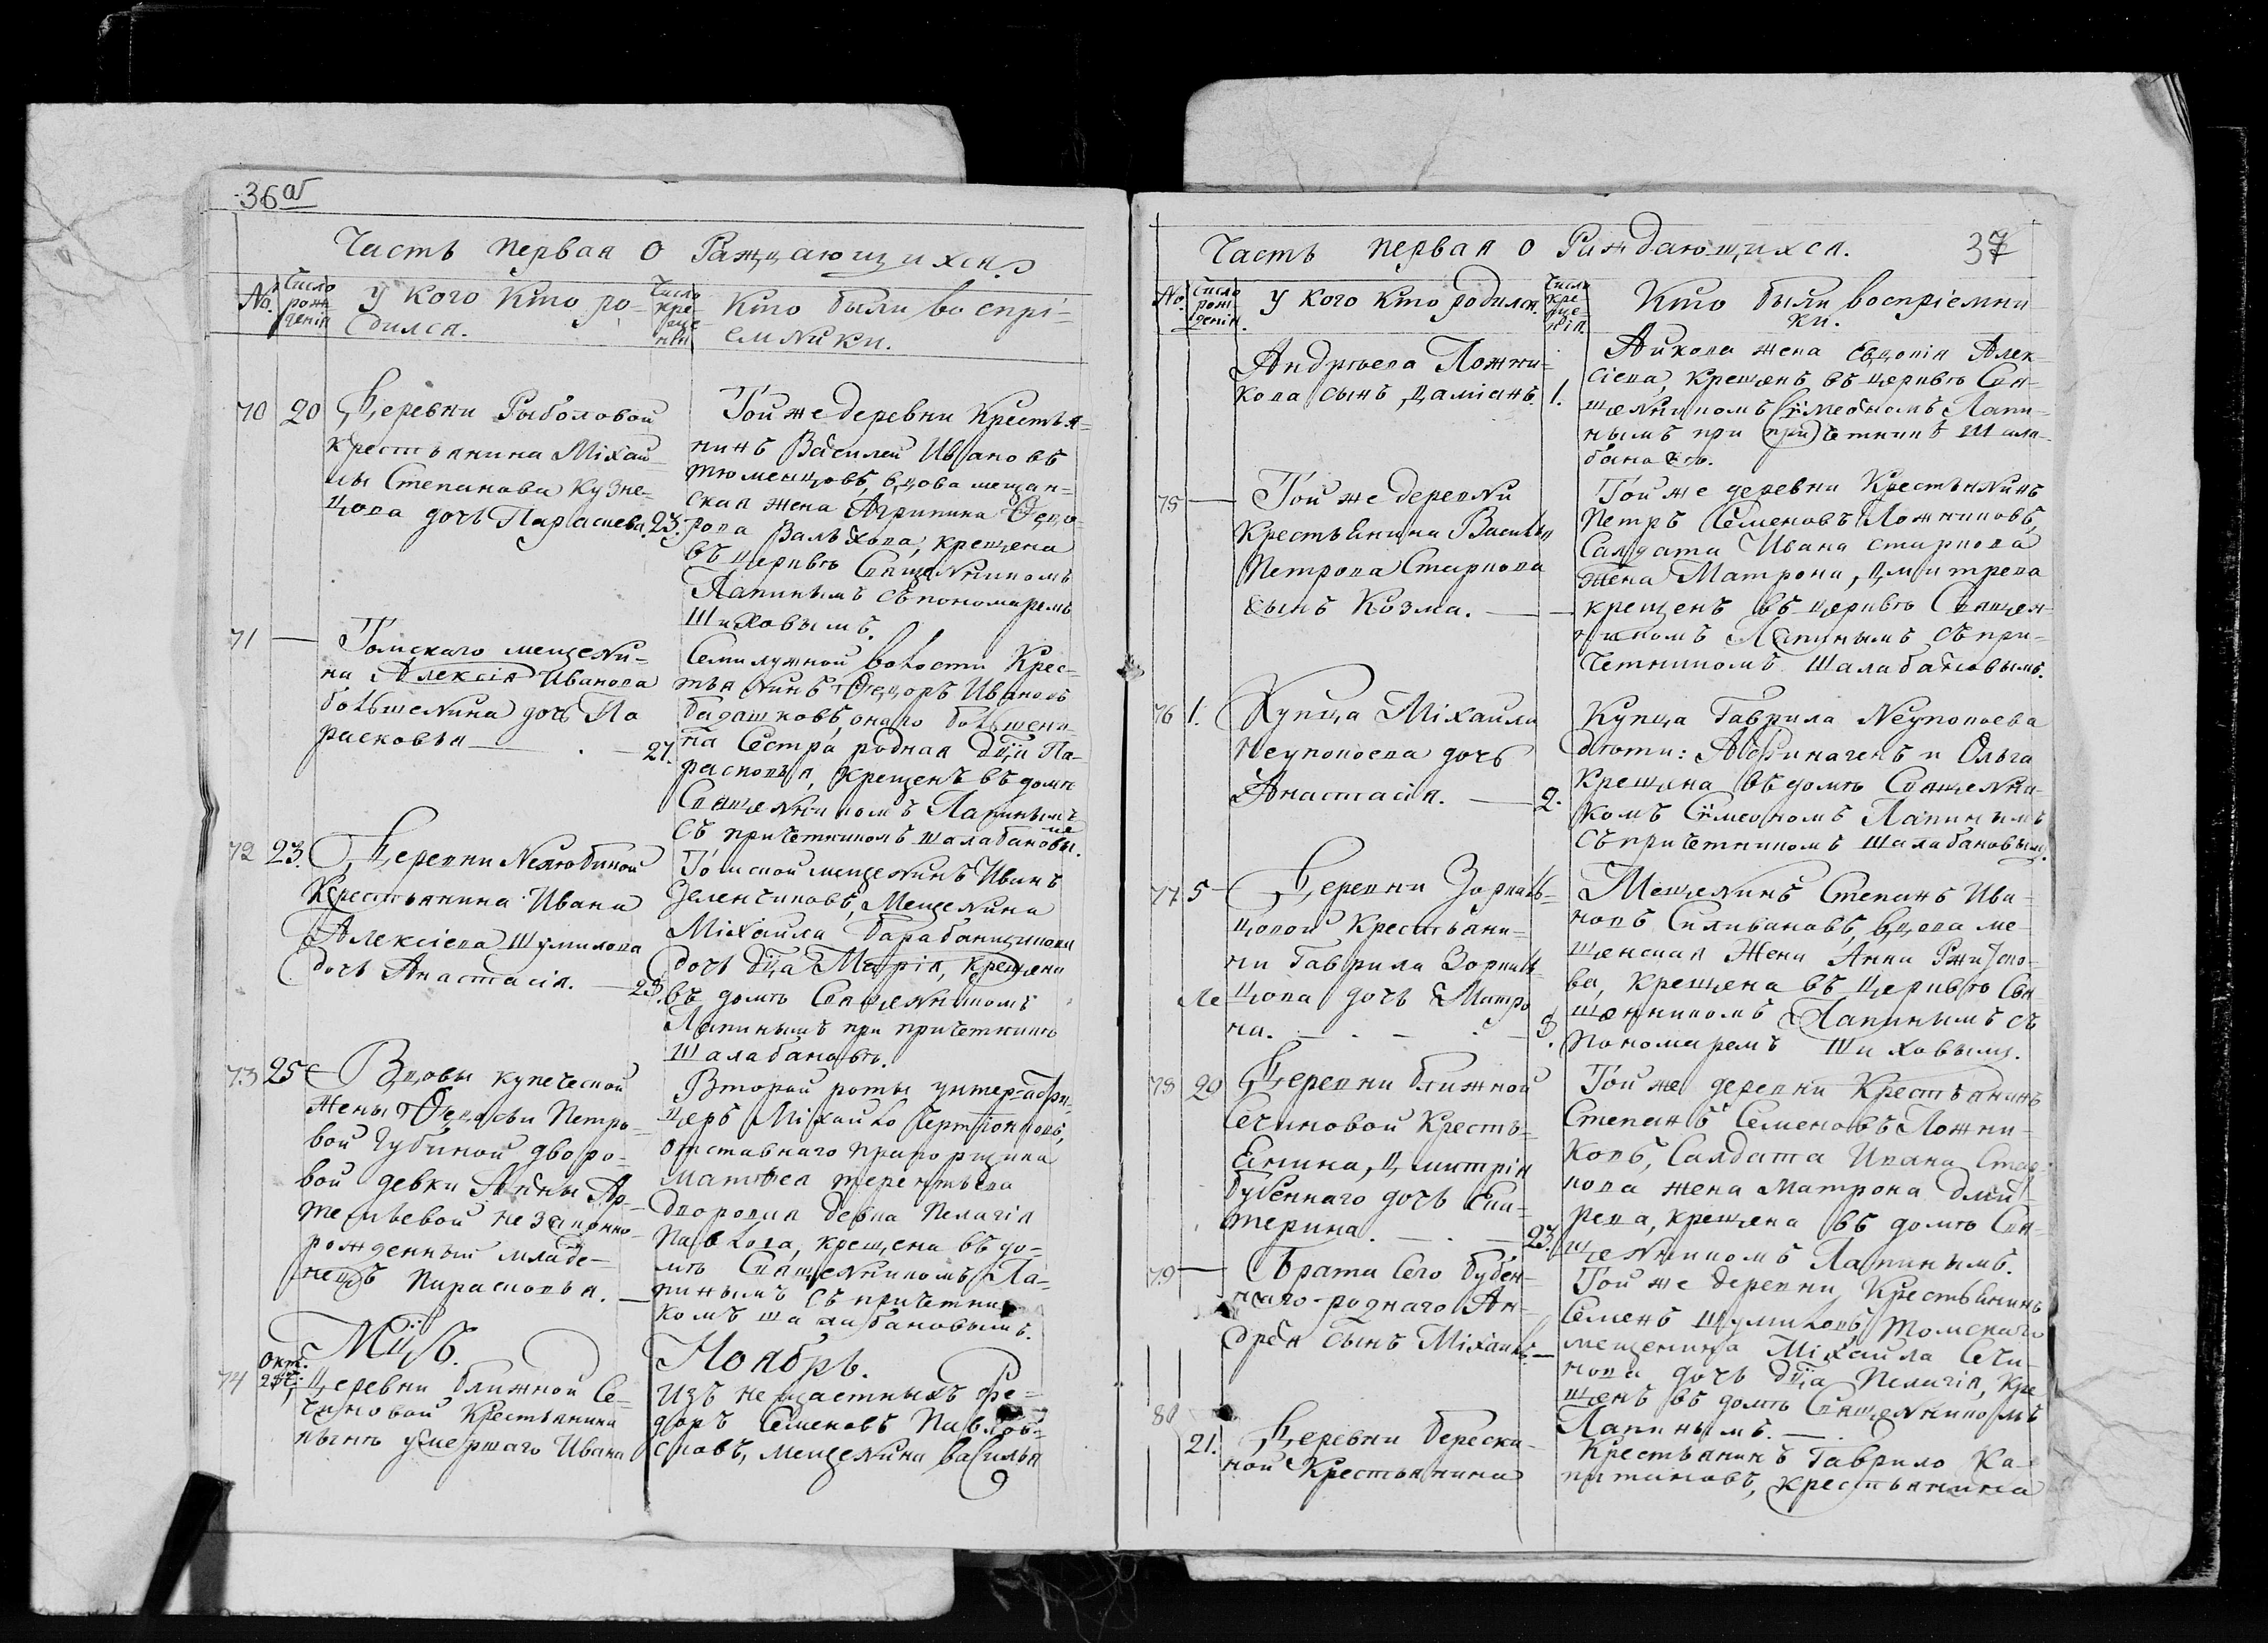 36 об
Часть первая о Раждающихся.
No.
Число рож денія
У кого кто ро-
дился.
Число кре- ще- нія
Кто были воспрі-
емники.
70 20 Деревни Рыболовой
крестьянина Міхаи
лы Степанова Кузне-
цова дочь Парасцева. 23.
Той же деревни Крестья-
нинъ Василей Ивановъ
тюменцовъ, вдова мещан-
ская жена Агрипина Ѳедо-
рова Вальхова, крещена
въ церквѣ Священникомъ
Лапинымъ съ пономаремъ
Шиховымъ.
71 — Томскаго мещени-
на Алексія Иванова
большенина дочь Па
расковья — . — 27.
Семилужной волости Крес-
тьянинъ Ѳедоръ Ивановъ
бадашковъ, онаго большени-
на Сестра родная дѣца Па-
расковья, крещенъ въ домѣ
Священникомъ Лапинымъ
съ причетникомъ шалабановы.
72 23. Деревни Нелюбиной
Крестьянина Ивана
Алексіева Шумилова
дочь Анастасія. — 25.
Томской мещенинъ Иванъ
Зеленчиковъ, Мещенина
Міхаила барабанщикова
дочь дѣца Марія, крещена
въ домѣ Священникомъ
Лапинымъ при причетникѣ
Шалабановѣ.
73 25 Вдовы купеческой
жены Ѳедосьи Петро-
вой Губиной дворо-
вой девки Анны Ар-
темьевой незаконно-
рожденный младе-
нецъ Парасковья. —
Второй роты унтер-афи-
церъ Міхаило
отставнаго прапорщика
Матвея терентьева
дворовая девка Пелагія
Павлова, крещена въ до-
мѣ Священникомъ Ла-
пинымъ съ причетни
комъ шалабановымъ.
Мцъ.
Ноябрь.
74 Окт. Деревни ближной Се-
чиновой Крестьянина
нынѣ умершаго Ивана
Изъ нещастныхъ Фе-
доръ Семеновъ Павлов-
сковъ, мещенина василья
37
Часть первая о Раждающихся.
No.
Число рож денія.
У кого кто родился.
Число кре- ще- нія.
Кто были воспріемни
ки.
Андрѣева Ложни-
кова сынъ, даміанъ. 1.
Айкова жена Евдокія Алек-
сіева, крещенъ въ церквѣ Свя-
щенникомъ Сімеономъ Лапи-
нымъ при (при)четникѣ Шала-
бановѣ.
75 — Той же деревни
Крестьянина Василья
Петрова Старкова
сынъ Козма. — —
Той же деревни Крестьянинъ
Петръ Семеновъ Ложниковъ,
Салдата Ивана Старкова
жена Матрона, дмитрева
крещенъ въ церквѣ Священ-
никомъ Лапинымъ съ при-
четникомъ Шалабановымъ.
76 1. Купца Міхаила
Неупокоева дочь
Анастасія. — 2.
Купца Гаврила Неупокоева
дѣти: Афиногенъ и Ольга
крещена въ домѣ Священни-
комъ Сімеономъ Лапинымъ
съ причетникомъ шалабановым.
77. 5 Деревни Зоркаль-
цовой Крестьяни-
на Гаврила Зоркаль-
цова дочь Матро
на. — . — . — 8.
Мещенинъ Степанъ Ива-
новъ Силивановъ, вдова ме-
щенская жена Анна
ва, крещена въ Церквѣ Свя
щенникомъ Лапинымъ съ
пономаремъ Шиховымъ.
78 20 Деревни ближной
Сечиновой Кресть-
янина, Дмитрія
бубеннаго дочь Ека-
терина. — . — 23.
Той же деревни Крестьянинъ
Степанъ Семеновъ Ложни-
ковъ, Салдата Ивана Стар-
кова жена Матрона дмит-
рева, крещена въ домѣ Свя-
щенникомъ Лапинымъ.
79 — Брата Сего бубен-
наго-роднаго Ан-
дрея сынъ Міхаилъ. —
Той же деревни Крестьянинъ
Семенъ Шумиловъ, томскаго
мещенина Міхаила Сечи-
нова дочь дѣца Пелагія, кре
щенъ въ домѣ Священникомъ
Лапинымъ. — .
80
21. Деревни берески-
ной Крестьянина
Крестьянинъ Гаврило Ка-
питановъ, крестьянина